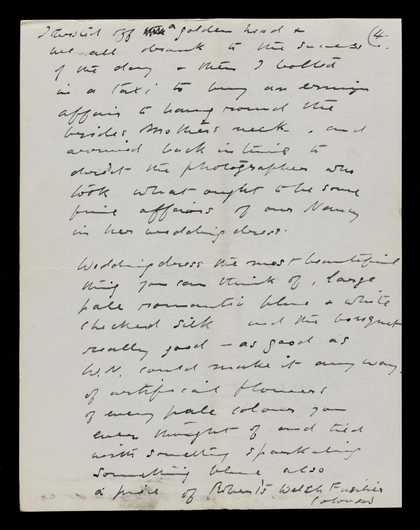 I twisted off a golden head & (4.
we all drank to the success
of the day & then I bolted
in a taxi to buy an ermine
affair to hang round the
brides Mothers neck, and
arrived back in time to
the photographer who
took what ought to be some
fine affairs of our Nancy
in her wedding dress.
Wedding dress the most beautiful
thing you can think of, large
pale romantic blue & white
checked silk and the bouquet
really good - as good as
W.N. could make it any way.
of artificial flowers
of every pale colour you
ever thought of and tied
with something sparkling
something blue also
a piece of Robert's Welch Fusilier
colours